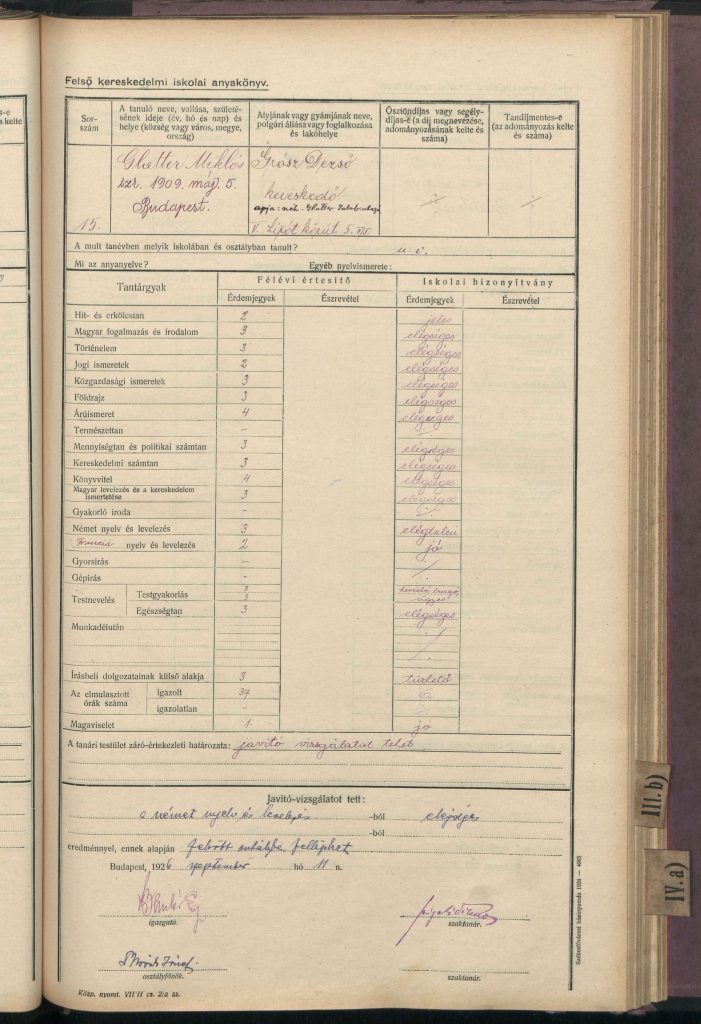 Felső kereskedelmi iskolai anyakönyv.
Sor-
szám
A tanuló neve, vallása, születé-
sének ideje (év, hó és nap) és
helye (község vagy város, megye,
ország)
Atyjának vagy gyámjának neve,
polgári állása vagy foglalkozása
és lakóhelye
Ösztöndíjas vagy segély-
díjas-é (a díj megnevezése,
adományozásának kelte és
száma)
Tandíjmentes-é
(az adományozás kelte
és száma)
15.
Glatter Miklós
izr. 1909. máj. 5.
Budapest.
Grosz Dezső
kereskedő
apja: néh. Glatter Jakab
V. Lipót körút 5.
A mult tanévben melyik iskolában és osztályban tanult? u. i.
Mi az anyanyelve? Egyéb nyelvismerete:
Tantárgyak Félévi értesítő Iskolai bizonyítvány
Érdemjegyek Észrevétel Érdemjegyek Észrevétel
Hit- és erkölcstan 2 jeles
Magyar fogalmazás és irodalom 3 elégséges
Történelem 3 elégséges
Jogi ismeretek 2 elégséges
Közgazdasági ismeretek 3 elégséges
Földrajz 3 elégséges
Árúismeret 4 elégséges
Természettan -
Mennyiségtan és politikai számtan 3 elégséges
Kereskedelmi számtan 3 elégséges
Könyvvitel 4 elégséges
Magyar levelezés és a kereskedelem
ismertetése 3 elégséges
Gyakorló iroda -
Német nyelv és levelezés 3 elégtelen
Francia nyelv és levelezés 2 jó
Gyorsírás -
Gépírás -
Testnevelés
Testgyakorlás 3 ügyes
Egészségtan 3 elégséges
Munkadélután
Írásbeli dolgozatainak külső alakja 3 türhető
Az elmulasztott
órák száma
igazolt 37
igazolatlan -
Magaviselet 1 jó
A tanári testület záró-értekezleti határozata: javító vizsgálatot tehet
Javító-vizsgálatot tett:
a német nyelv és levelezés -ből elégséges
-ből
eredménnyel, ennek alapján felsőbb osztályba felléphet
Budapest, 1926 szeptember hó 11 n.
igazgató.
szaktanár.
osztályfőnök.
szaktanár.
Közp. nyomt. VII H cs. 2/a sz.
Székesfővárosi házinyomda 1924 —
III. b)
IV. a)